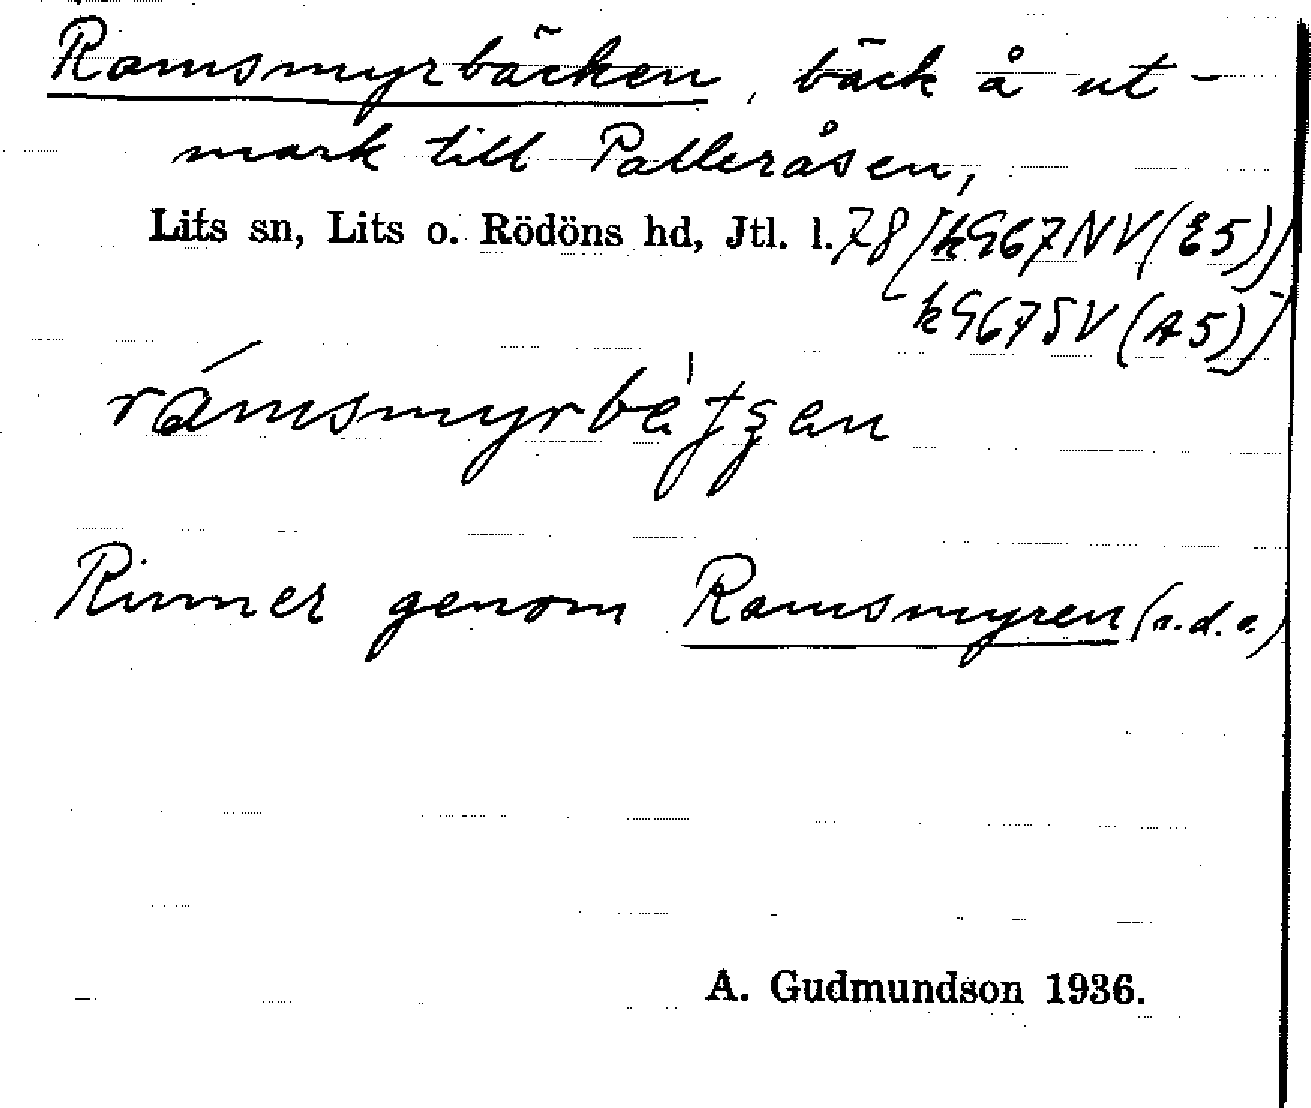 Ramsmyrbäcken, bäck å ut-
mark till Palleråsen,
Lits sn, Lits o. Rödöns hd, Jtl. l. 78 [k967NV(E5)]
k967SV(A5)]
Rinner genom Ramsmyren (s.d.o)
A. Gudmundson 1936.